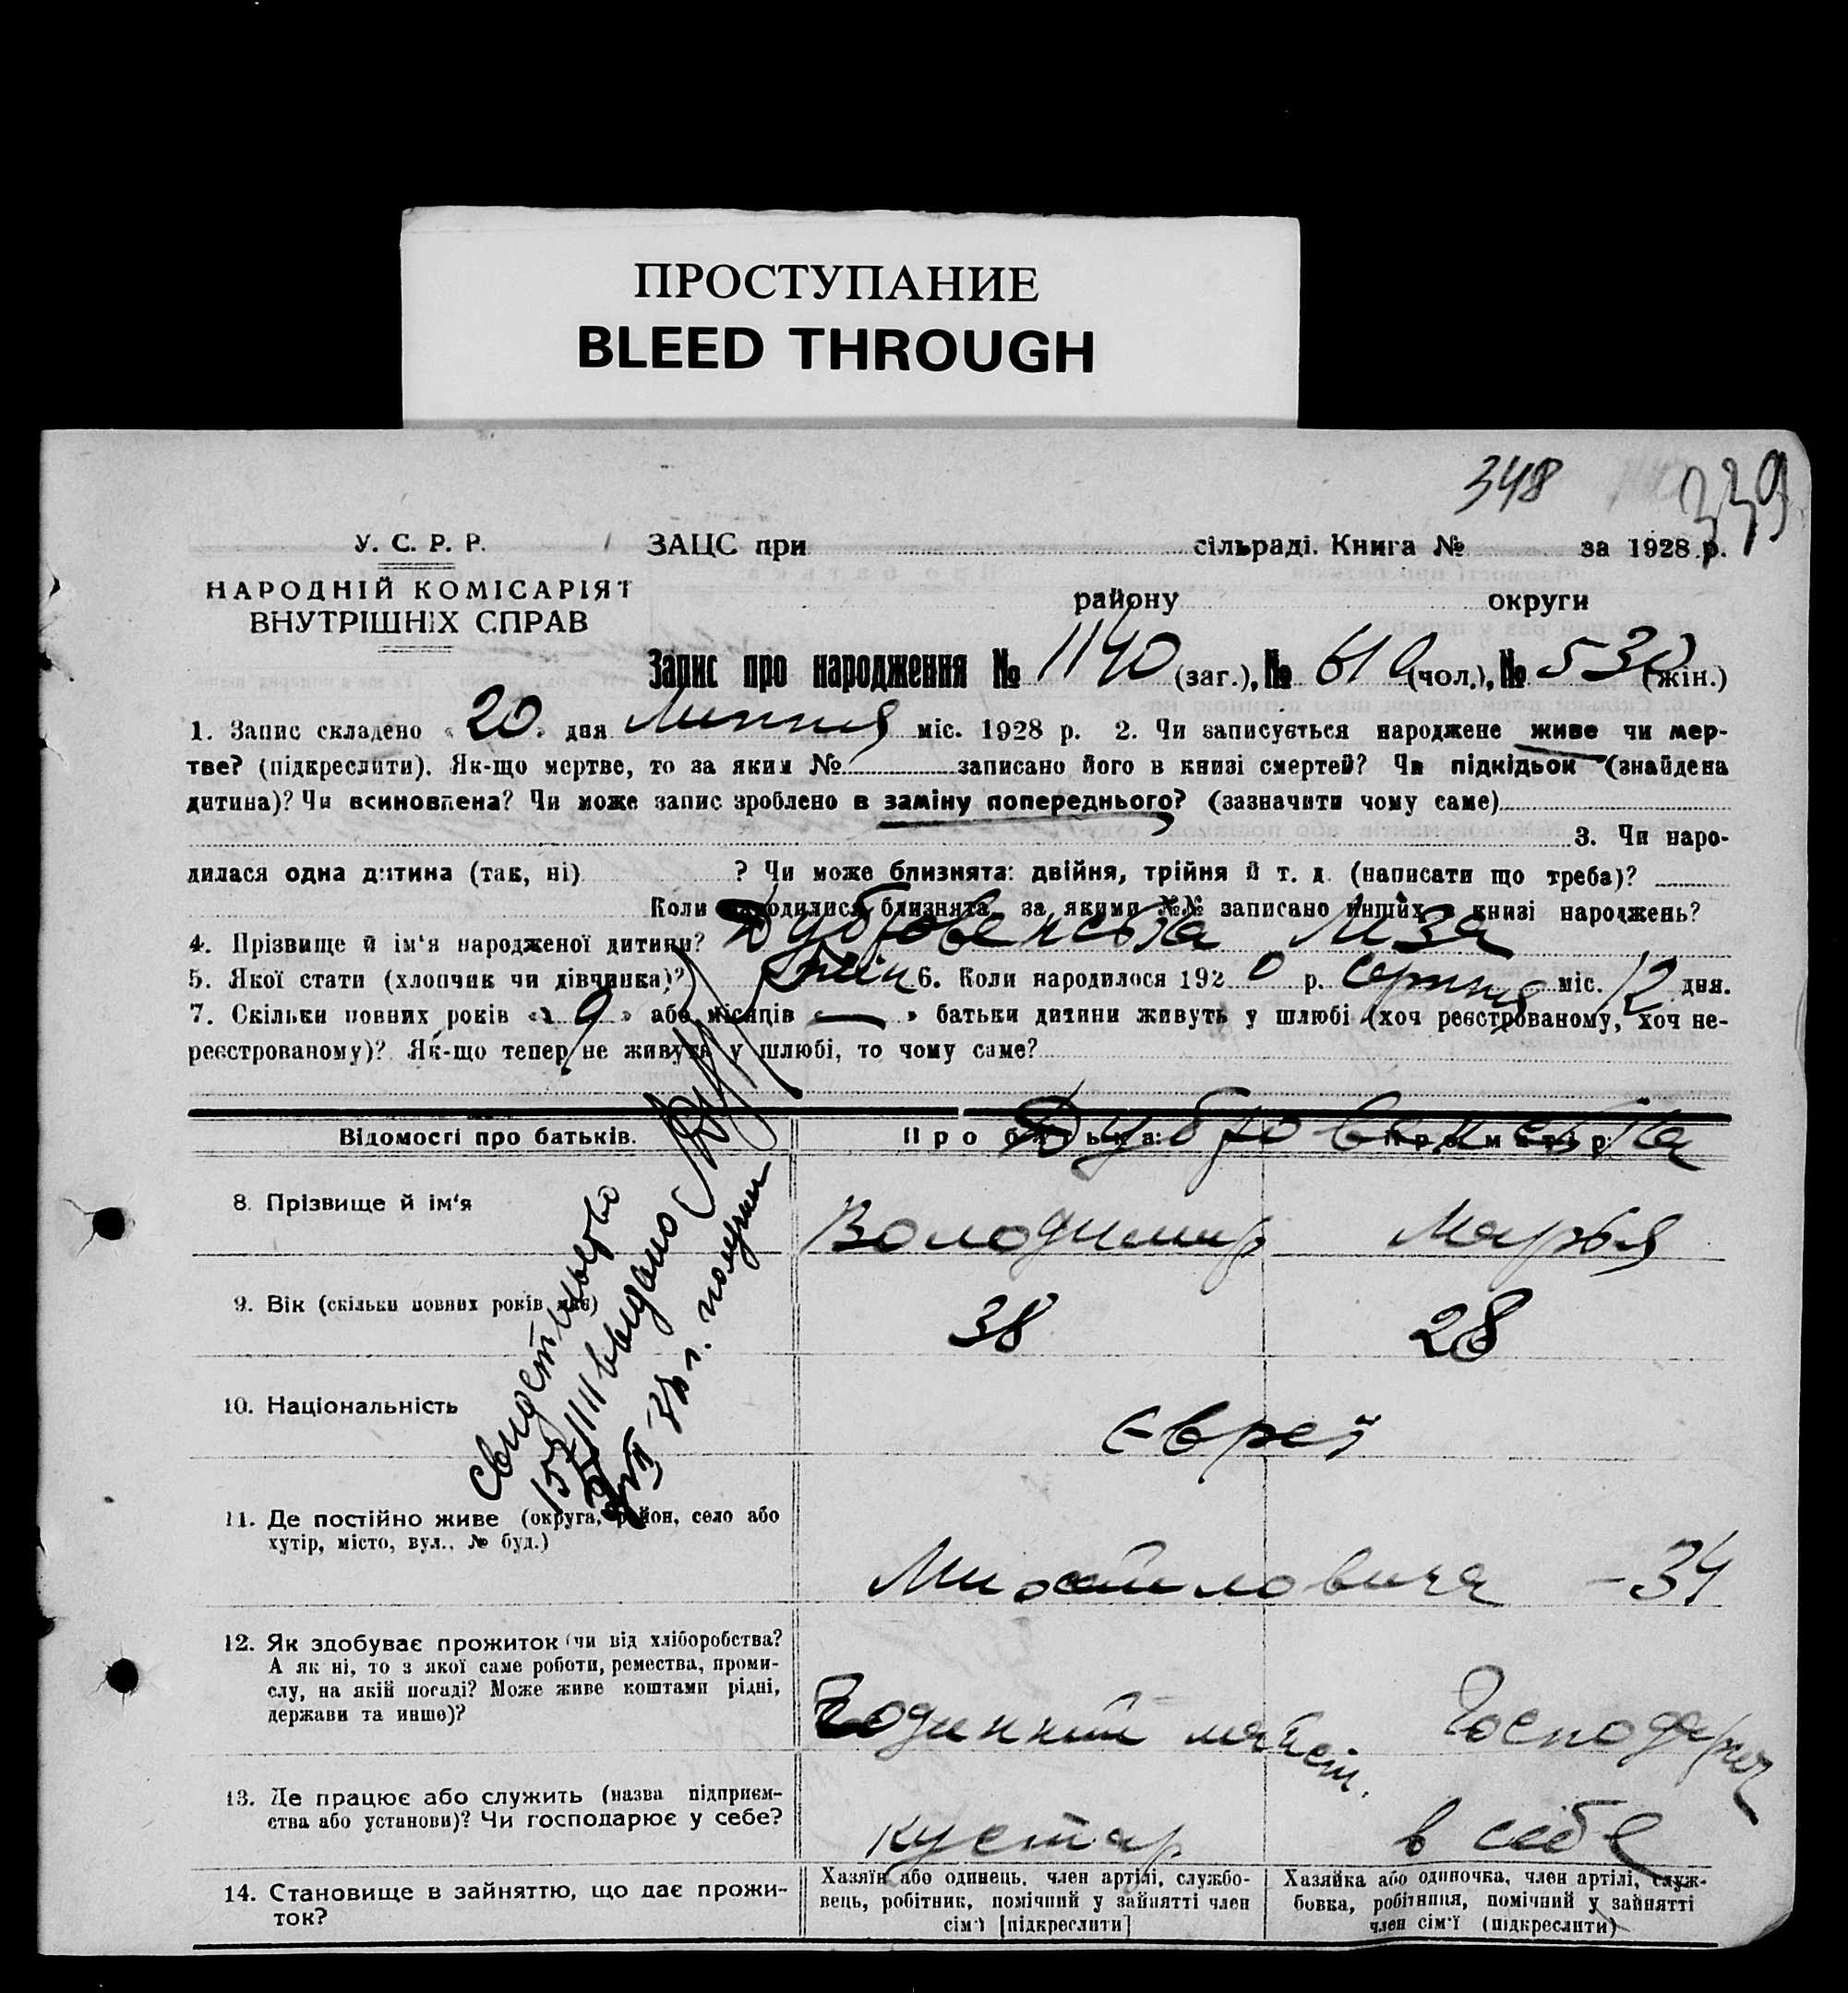 ПРОСТУПАНИЕ
BLEED THROUGH
348 339
У. С. Р. Р.
НАРОДНІЙ КОМІСАРІЯТ
ВНУТРІШНІХ СПРАВ
ЗАЦС при сільраді. Книга № за 1928 р.
району округи
Запис про народження № 1140 (заг.), № 610 (чол.), № 530 (жін.)
1. Запис складено « 20 » дня Липня міс. 1928 р. 2. Чи записується народжене живе чи мер-
тве? (підкреслити). Як-що мертве, то за яким № записано його в книзі смертей? Чи підкідьок (знайдена
дитина)? Чи всиновлена? Чи може запис зроблено в заміну попереднього? (зазначити чому саме)
3. Чи наро-
дилася одна дитина (так, ні) ? Чи може близнята: двійня, трійня й т. д. (написати що треба)?
Коли народилися близнята, за якими №№ записано инших в книзі народжень?
4. Прізвище й ім'я народженої дитини? Дубровенська Иза
5. Якої стати (хлопчик чи дівчинка)? жін 6. Коли народилося 192 0 р. серпня міс. 12 дня.
7. Скільки повних років « 9 » або місяців « — » батьки дитини живуть у шлюбі (хоч реєстрованому, хоч не-
реєстрованому)? Як-що тепер не живуть у шлюбі, то чому саме?
Дубровенська
Відомості про батьків. Про батька: Про матір:
8. Прізвище й ім'я Володимир Марья
9. Вік (скільки повних років має) 38 28
10. Національність Євреї
свидетельство
выдано
г. получил
11. Де постійно живе (округа, район, село або
хутір, місто, вул., № буд.)
Михайловича - 34
12. Як здобуває прожиток (чи від хліборобства?
А як ні, то з якої саме роботи, ремества, проми-
слу, на якій посаді? Може живе коштами рідні,
держави та инше)?
Годинний майст. Господарка
13. Де працює або служить (назва підприєм-
ства або установи)? Чи господарює у себе?
кустар в себе
14. Становище в зайняттю, що дає прожи-
ток?
Хазяїн або одинець, член артілі, службо-
вець, робітник, помічний у зайнятті член
сім'ї [підкреслити]
Хазяйка або одиночка, член артілі, служ-
бовка, робітниця, помічний у зайнятті
член сім'ї (підкреслити)